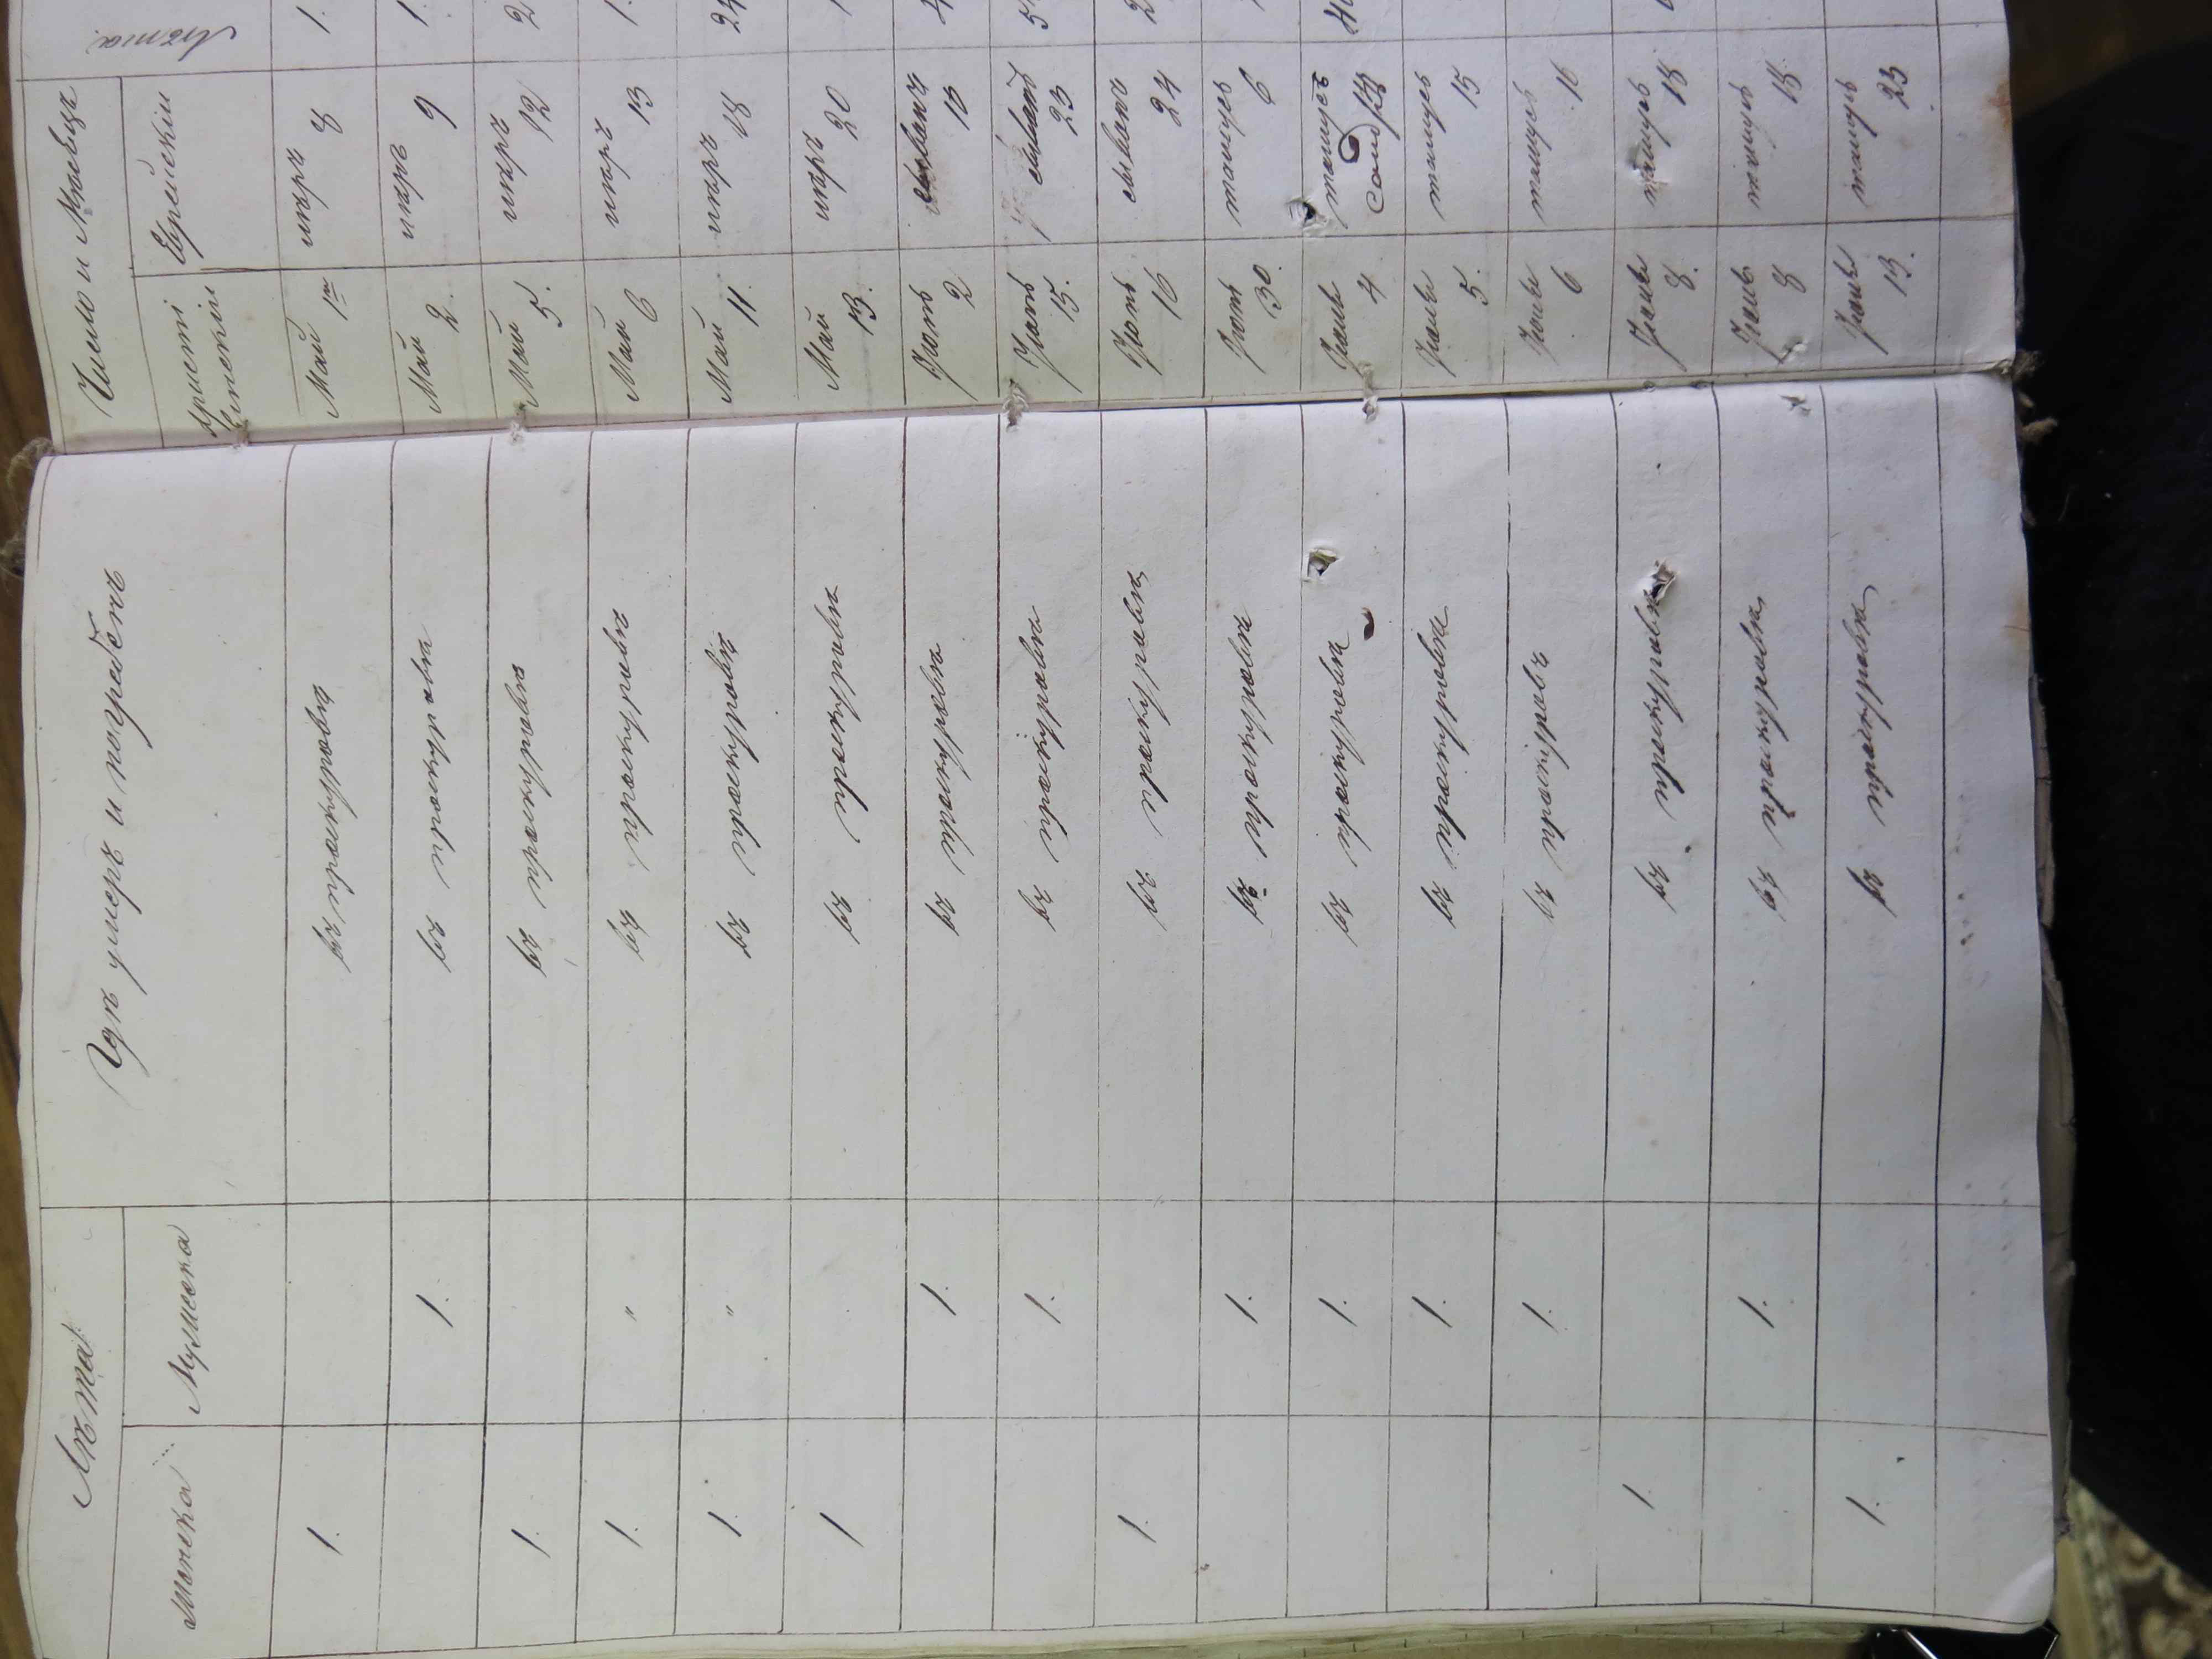 Лѣта
Гдѣ умеръ и погребенъ
Число и Мѣсяцъ
Лѣта
Женска
Мужеска
Христі
Еврейскіи
1. въ проскуровѣ Май 1 ияръ 8 1.
1. въ проскуровѣ Май 2. ияръ 9 1.
1. въ проскуровѣ Май 5. ияръ 12 2
1. " въ проскуровѣ Май 6 ияръ 13 1.
1. " въ проскуровѣ Май 11. ияръ 18 24
1 въ проскуровѣ Май 13. ияръ 20 1
1. въ проскуровѣ Іюнь 2 сивана 10 4
1. въ проскуровѣ Іюнь 15. сивана 23 5
1. въ проскуровѣ Іюнь 16 сивана 24 2
1. въ проскуровѣ Іюнь 30. тамузъ 6
1. въ проскуровѣ Іюль 4 тамузъ 40
1. въ проскуровѣ Іюль 5. тамузъ 15
1. въ проскуровѣ Іюль 6 тамузъ 16
1. въ проскуровѣ Іюль 8. тамузъ 18
1. въ проскуровѣ Іюль 8 тамузъ 18.
1. въ проскуровѣ Іюль 13. тамузъ 23